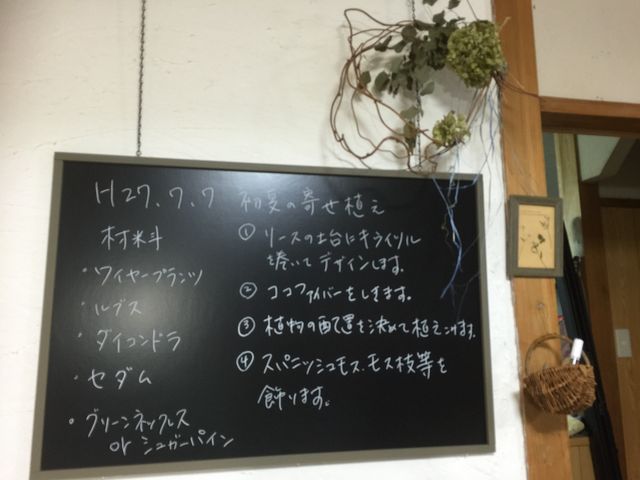 H27.7.7 初夏の寄せ植え
材料
・ワイヤープランツ
・ルブス
・ダイコンドラ
・セダム
・グリーンネックレス
or シュガーパイン
① リースの土台にキウイツル
を巻いてデザインします。
② ココファイバーをしきます。
③ 植物の配置を決めて植えつけます。
④ スパニッシュモス、モス枝等を
飾ります。